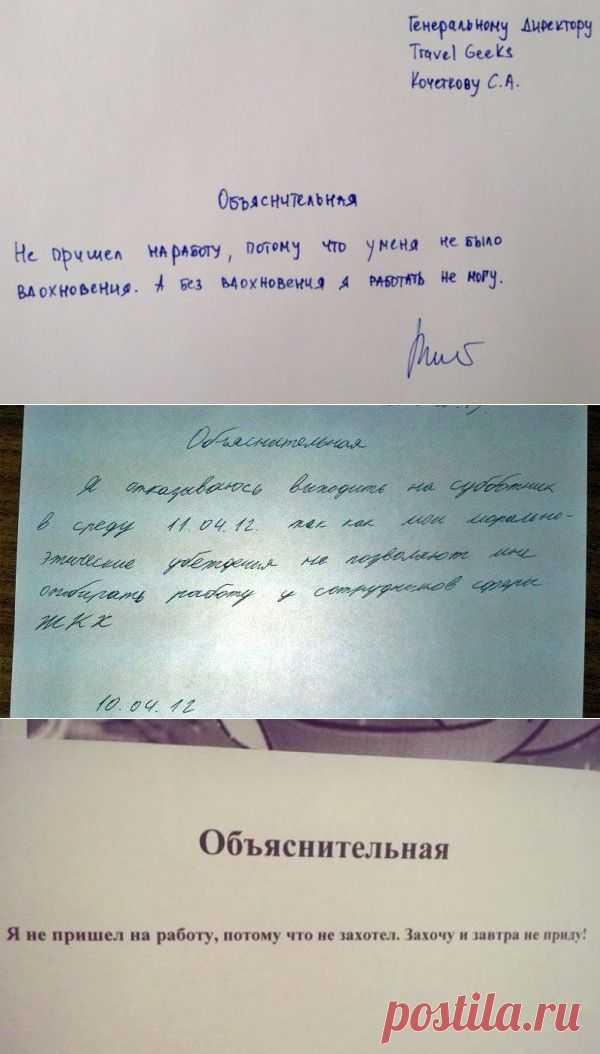 Генеральному директору
Travel Geeks
Кочеткову С.А.
Объяснительная
Не пришел на работу, потому что у меня не было
вдохновения. А без вдохновения я работать не могу.
Объяснительная
Я отказываюсь выходить на субботник
в среду 11.04.12. так как мои морально-
этические убеждения не позволяют мне
отбирать работу у сотрудников сферы
ЖКХ
10.04.12
Объяснительная
Я не пришел на работу, потому что не захотел. Захочу и завтра не приду!
postila.ru